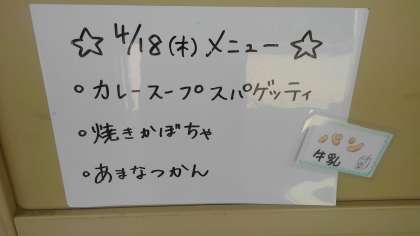 ☆4/18(木)メニュー☆
○カレースープスパゲッティ
○焼きかぼちゃ
○あまなつかん
パン
牛乳